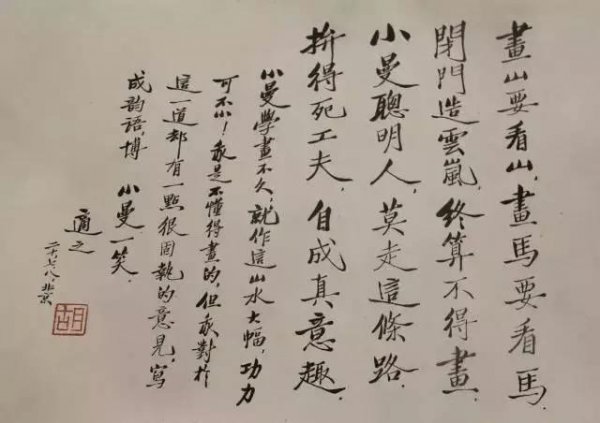 畫山要看山，畫馬要看馬，
閉門造雲嵐，終算不得畫，
小曼聰明人，莫走這條路，
拚得死工夫，自成真意趣。
小曼學畫不久，就作這山水大幅，功力
可不小！我是不懂得畫的，但我對於
這一道却有一點很固執的意見，寫
成韵語，博 小曼一笑。
適之
二十，七，八，北京
胡